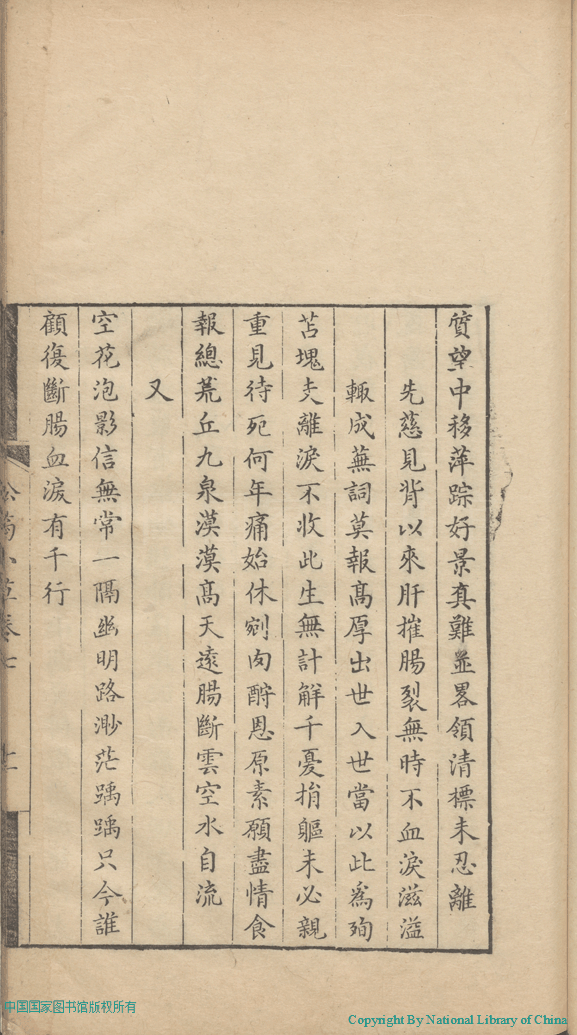 質望中移萍踪好景真難並畧領清標未忍離
先慈見背以來肝摧腸裂無時不血淚滋溢
輒成蕪詞莫報髙厚出世入世當以此為殉
苫塊夫離淚不收此生無計解千憂捐軀未必親
重見待死何年痛始休剜肉酧恩原素願盡情食
報總荒丘九泉漠漠髙天逺腸斷雲空水自流
又
空花泡影信無常一隔幽明路渺茫踽踽只今誰
顧復斷腸血淚有千行
小草卷七
中国国家图书馆版权所有
Copyright By National Library of China